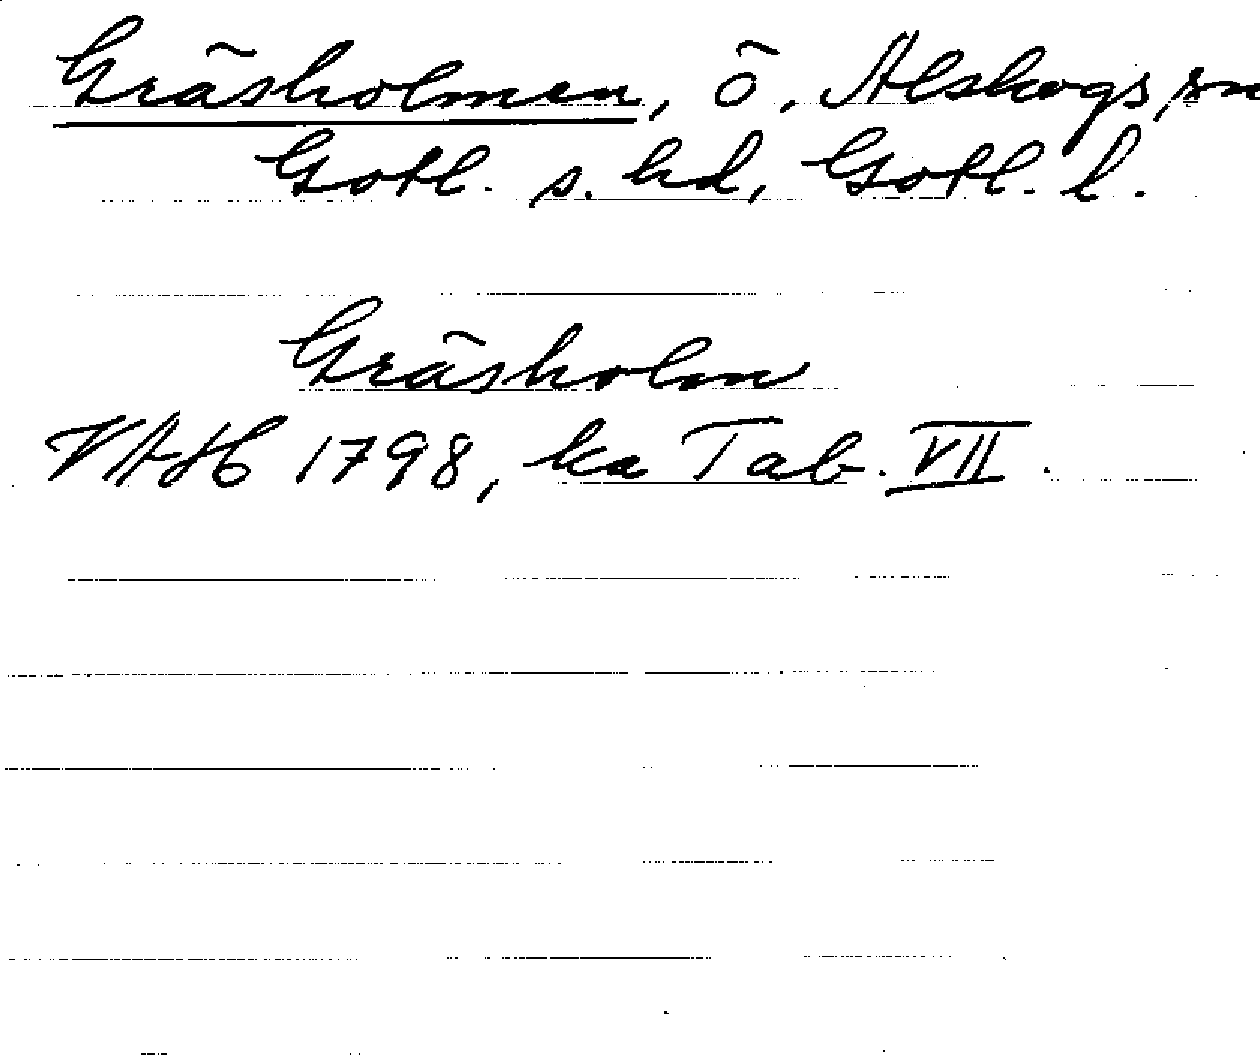 Gräsholmen, ö, Alskogs sn
Gotl. s. hd, Gotl. l.
Gräsholm
VAH 1798, ka Tab. VII.